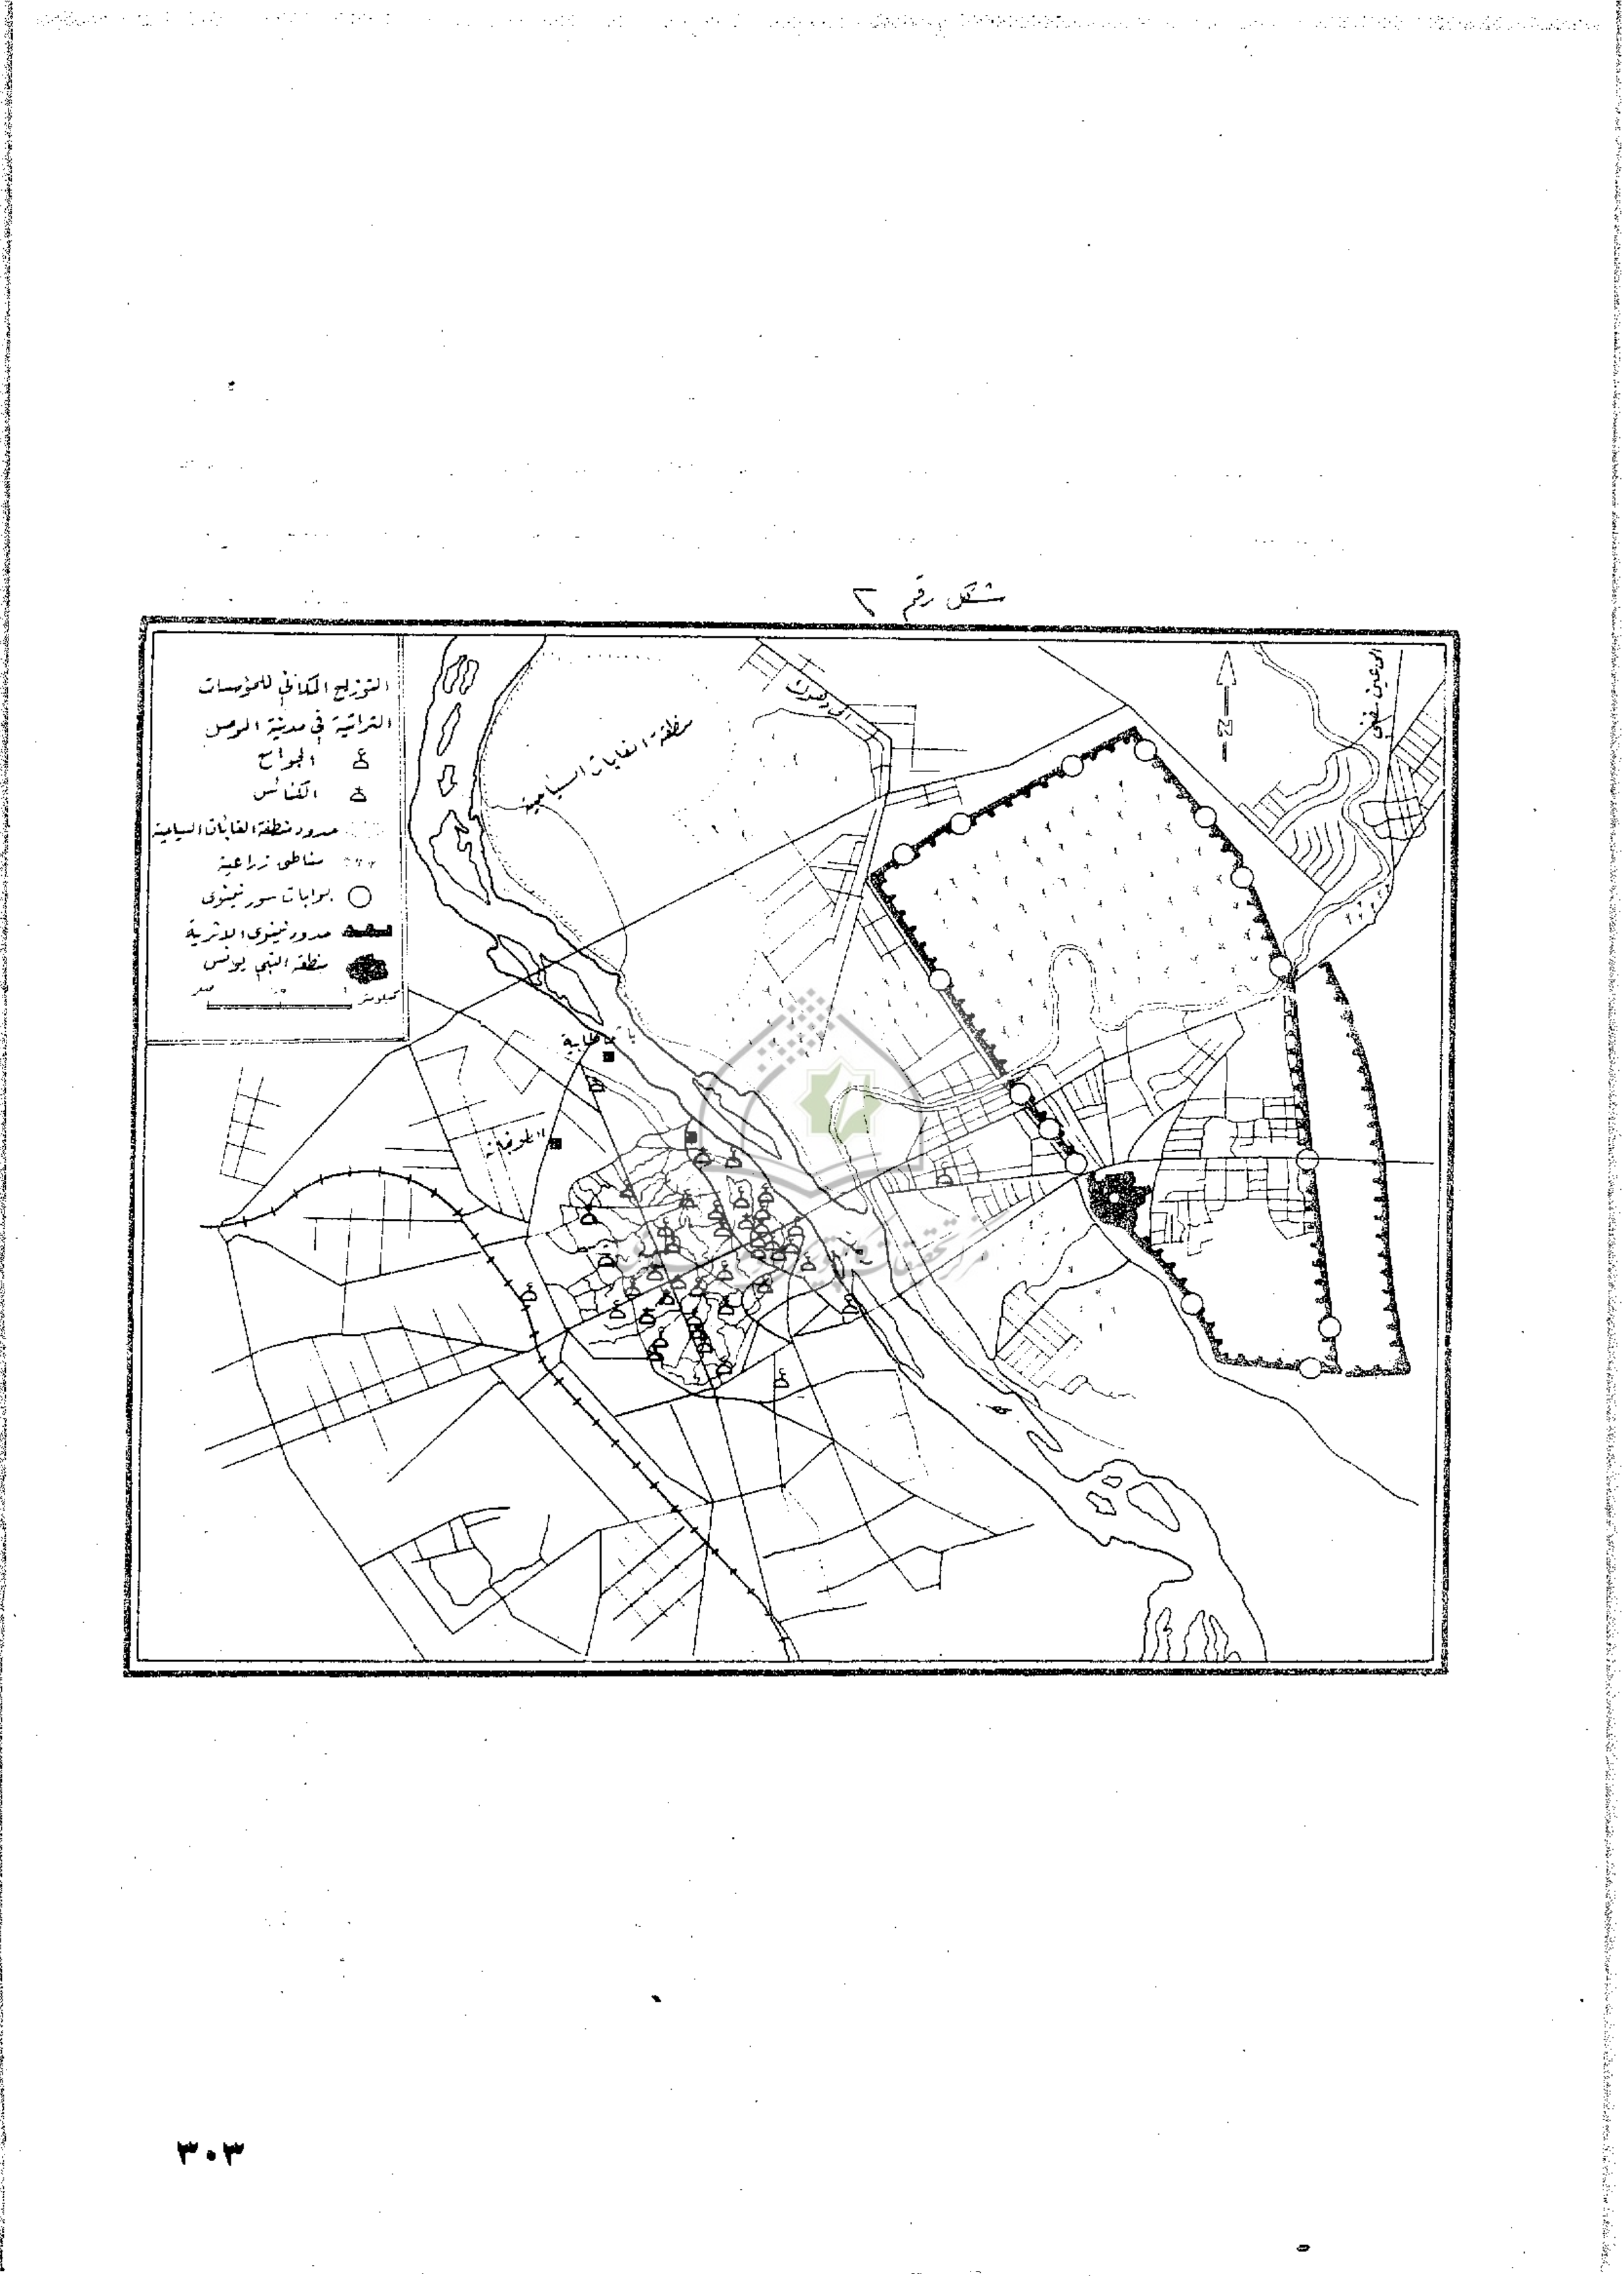 شكل رقم ٢
التوزيع المكاني للمؤسسات
التراثية في مدينة الموصل
الجوامع
الكنائس
حدود منطقة الغابات السياحية
مناطق زراعية
بوابات سور نينوى
حدود نينوى الاثرية
منطقة النبي يونس
صفر
كيلومتر
منطقة الغابات السياحية
الى عين سفني
N
باشطابية
٣٠٣